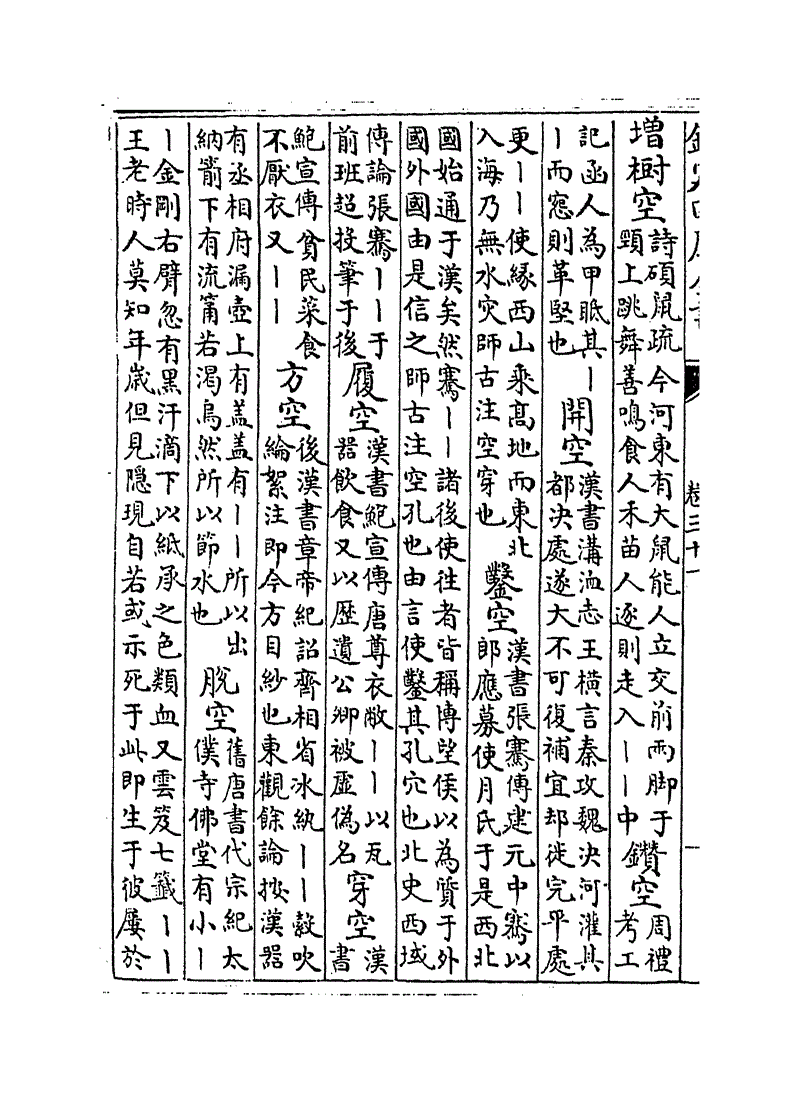 增樹空
詩碩鼠疏今河東有大鼠能人立交前兩脚于
頸上跳舞善鳴食人禾苗人逐則走入丨丨中
鑚空
周禮
考工
記函人為甲眡其丨
丨而窓則革堅也
開空
漢書溝洫志王橫言秦攻魏決河灌其
都決處遂大不可復補宜却徙完平處
更丨丨使縁西山乘髙地而東北
入海乃無水災師古注空穿也
鑿空
漢書張騫傳建元中騫以
郎應募使月氏于是西北
國始通于漢矣然騫丨丨諸後使往者皆稱博望侯以為質于外
國外國由是信之師古注空孔也由言使鑿其孔穴也北史西域
傳論張騫丨丨于
前班超投筆于後
履空
漢書鮑宣傳唐尊衣敝丨丨以瓦
器飲食又以歴遺公卿被虛偽名
穿空
漢
書
鮑宣傳貧民菜食
不厭衣又丨丨
方空
後漢書章帝紀詔齊相省冰紈丨丨縠吹
綸絮注即今方目紗也東觀餘論按漢器
有丞相府漏壺上有盖盖有丨丨所以出
納箭下有流筩若渴烏然所以節水也
脫空
舊唐書代宗紀太
僕寺佛堂有小丨
丨金剛右臂忽有黑汗滴下以紙承之色類血又雲笈七籤丨丨
王老時人莫知年歲但見隱現自若或示死于此即生于彼屢於